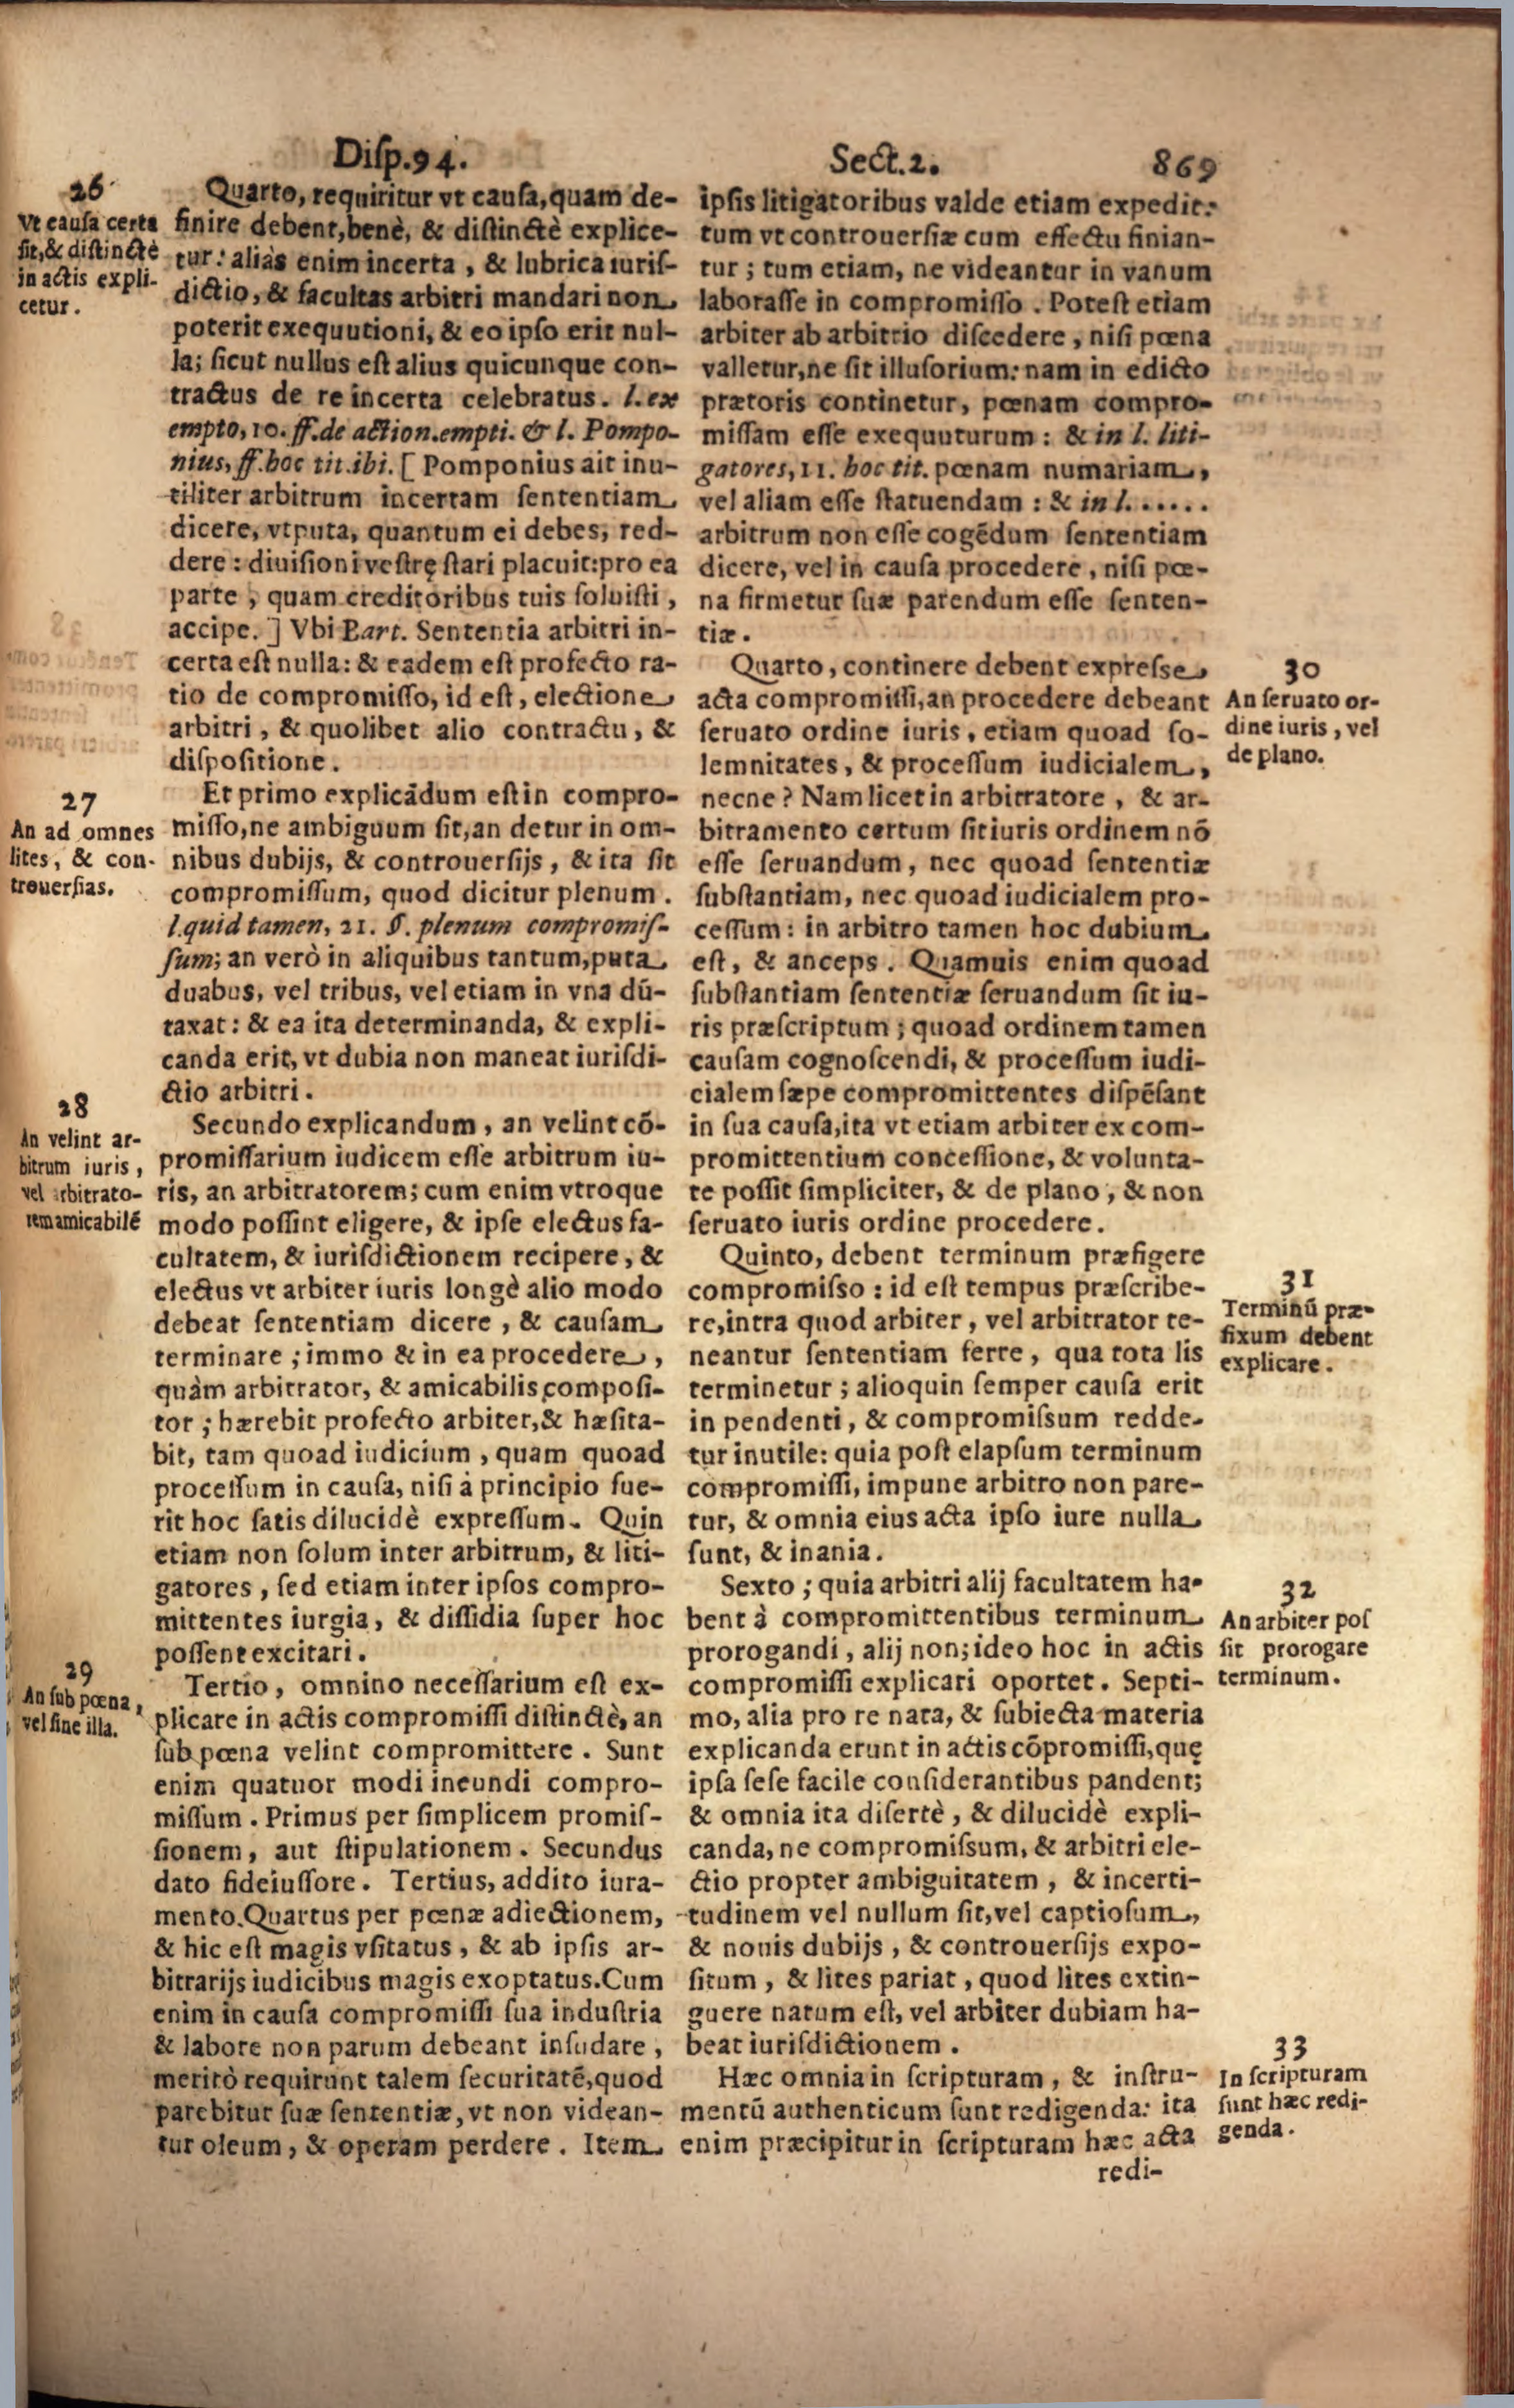 Disp.94. Sect.2. 869
26
Vt causa certa
sit,& distinctè
in actis expli-
cetur.
Quarto, requiritur vt causa,quam de-
finire debent,benè, & distinctè explice-
tur: aliàs enim incerta, & lubrica iuris-
dictio, & facultas arbitri mandari non
poterit exequutioni, & eo ipso erit nul-
la; sicut nullus est alius quicunque con-
tractus de re incerta celebratus. l.ex
empto, 10. ff.de action.empti. & l. Pompo-
nius, ff.hoc tit.ibi. [ Pomponius ait inu-
tiliter arbitrum incertam sententiam
dicere, vtputa, quantum ei debes, red-
dere : diuisioni vestrę stari placuit:pro ea
parte, quam creditoribus tuis soluisti,
accipe. ] Vbi Bart. Sententia arbitri in-
certa est nulla: & eadem est profecto ra-
tio de compromisso, id est, electione
arbitri, & quolibet alio contractu, &
dispositione.
27
An ad omnes
lites, & con-
trouersias.
Et primo explicãdum est in compro-
misso,ne ambiguum sit,an detur in om-
nibus dubijs, & controuersijs, & ita sit
compromissum, quod dicitur plenum.
l.quid tamen, 21. §. plenum compromis-
sum; an verò in aliquibus tantum,puta
duabus, vel tribus, vel etiam in vna dũ-
taxat: & ea ita determinanda, & expli-
canda erit, vt dubia non maneat iurisdi-
ctio arbitri.
28
An velint ar-
bitrum iuris,
vel arbitrato-
rem amicabilẽ
Secundo explicandum, an velint cõ-
promissarium iudicem esse arbitrum iu-
ris, an arbitratorem; cum enim vtroque
modo possint eligere, & ipse electus fa-
cultatem, & iurisdictionem recipere, &
electus vt arbiter iuris longè alio modo
debeat sententiam dicere, & causam
terminare ; immo & in ea procedere,
quàm arbitrator, & amicabilis composi-
tor ; hærebit profecto arbiter,& hæsita-
bit, tam quoad iudicium, quam quoad
processum in causa, nisi à principio fue-
rit hoc satis dilucidè expressum. Quin
etiam non solum inter arbitrum, & liti-
gatores, sed etiam inter ipsos compro-
mittentes iurgia, & dissidia super hoc
possent excitari.
29
An sub pœna,
vel sine illa.
Tertio, omnino necessarium est ex-
plicare in actis compromissi distinctè, an
sub pœna velint compromittere. Sunt
enim quatuor modi ineundi compro-
missum. Primus per simplicem promis-
sionem, aut stipulationem. Secundus
dato fideiussore. Tertius, addito iura-
mento.Quartus per pœnæ adiectionem,
& hic est magis vsitatus, & ab ipsis ar-
bitrarijs iudicibus magis exoptatus.Cum
enim in causa compromissi sua industria
& labore non parum debeant insudare,
meritò requirunt talem securitatẽ,quod
parebitur suæ sententiæ, vt non videan-
tur oleum, & operam perdere. Item
ipsis litigatoribus valde etiam expedit:
tum vt controuersiæ cum effectu finian-
tur ; tum etiam, ne videantur in vanum
laborasse in compromisso. Potest etiam
arbiter ab arbitrio discedere, nisi pœna
valletur,ne sit illusorium: nam in edicto
prætoris continetur, pœnam compro-
missam esse exequuturum: & in l. liti-
gatores, 11. hoc tit. pœnam numariam,
vel aliam esse statuendam : & in l. . . . . .
arbitrum non esse cogẽdum sententiam
dicere, vel in causa procedere, nisi pœ-
na firmetur suæ parendum esse senten-
tiæ.
30
An seruato or-
dine iuris, vel
de plano.
Quarto, continere debent expresse
acta compromissi,an procedere debeant
seruato ordine iuris, etiam quoad so-
lemnitates, & processum iudicialem,
necne ? Nam licet in arbitratore, & ar-
bitramento certum sit iuris ordinem nõ
esse seruandum, nec quoad sententiæ
substantiam, nec quoad iudicialem pro-
cessum: in arbitro tamen hoc dubium
est, & anceps. Quamuis enim quoad
substantiam sententiæ seruandum sit iu-
ris præscriptum ; quoad ordinem tamen
causam cognoscendi, & processum iudi-
cialem sæpe compromittentes dispẽsant
in sua causa,ita vt etiam arbiter ex com-
promittentium concessione, & volunta-
te possit simpliciter, & de plano, & non
seruato iuris ordine procedere.
31
Terminũ præ-
fixum debent
explicare.
Quinto, debent terminum præfigere
compromisso : id est tempus præscribe-
re,intra quod arbiter, vel arbitrator te-
neantur sententiam ferre, qua tota lis
terminetur ; alioquin semper causa erit
in pendenti, & compromissum redde-
tur inutile: quia post elapsum terminum
compromissi, impune arbitro non pare-
tur, & omnia eius acta ipso iure nulla
sunt, & inania.
32
An arbiter pos
sit prorogare
terminum.
Sexto ; quia arbitri alij facultatem ha-
bent à compromittentibus terminum
prorogandi, alij non;ideo hoc in actis
compromissi explicari oportet. Septi-
mo, alia pro re nata, & subiecta materia
explicanda erunt in actis cõpromissi,quę
ipsa sese facile considerantibus pandent;
& omnia ita disertè, & dilucidè expli-
canda, ne compromissum, & arbitri ele-
ctio propter ambiguitatem, & incerti-
tudinem vel nullum sit,vel captiosum,
& nouis dubijs, & controuersijs expo-
situm, & lites pariat, quod lites extin-
guere natum est, vel arbiter dubiam ha-
beat iurisdictionem.
33
In scripturam
sunt hæc redi-
genda.
Hæc omnia in scripturam, & instru-
mentũ authenticum sunt redigenda: ita
enim præcipitur in scripturam hæc acta
redi-